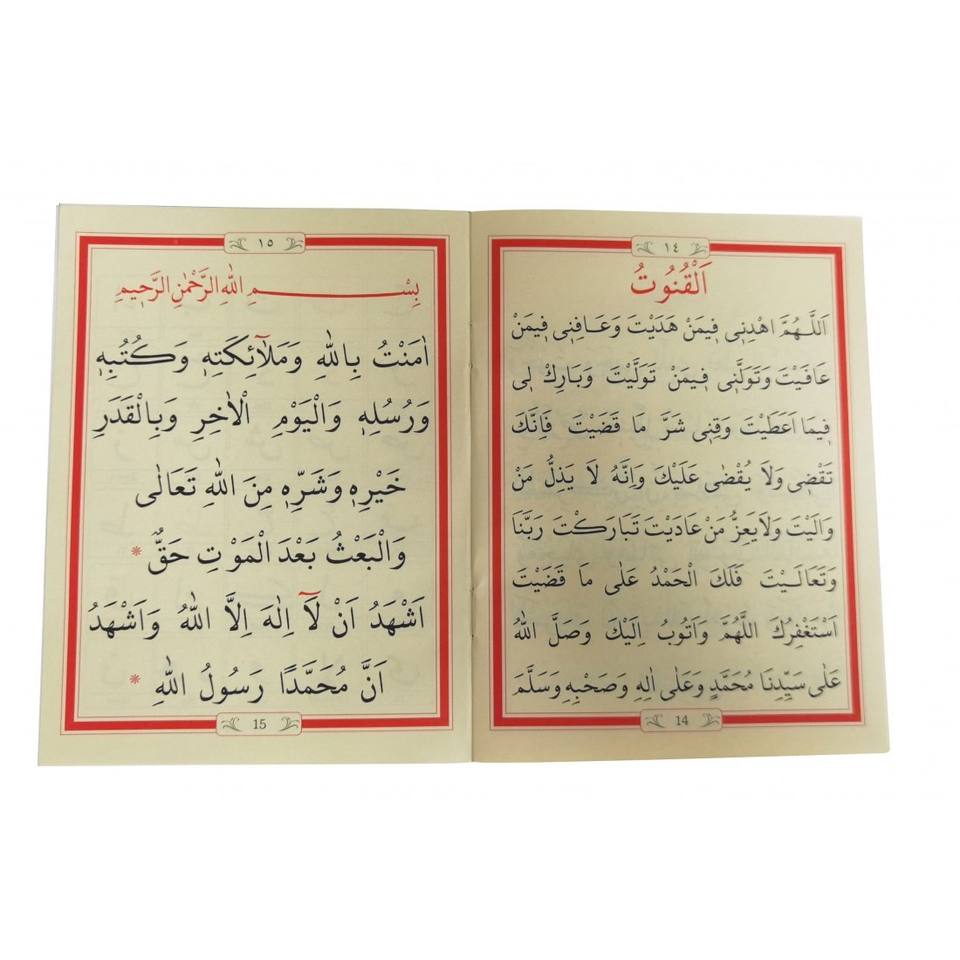 ١٤
اَلْقُنُوتُ
اَللّٰهُمَّ اهْدِنِى فِيمَنْ هَدَيْتَ وَعَافِنِى فِيمَنْ
عَافَيْتَ وَتَوَلَّنِى فِيمَنْ تَوَلَّيْتَ وَبَارِكْ لِى
فِيمَا اَعْطَيْتَ وَقِنِى شَرَّ مَا قَضَيْتَ فَاِنَّكَ
تَقْضِى وَلَا يُقْضٰى عَلَيْكَ وَاِنَّهُ لَا يَذِلُّ مَنْ
وَالَيْتَ وَلَا يَعِزُّ مَنْ عَادَيْتَ تَبَارَكْتَ رَبَّنَا
وَتَعَالَيْتَ فَلَكَ الْحَمْدُ عَلٰى مَا قَضَيْتَ
اَسْتَغْفِرُكَ اللّٰهُمَّ وَاَتُوبُ اِلَيْكَ وَصَلَّ اللّٰهُ
عَلٰى سَيِّدِنَا مُحَمَّدٍ وَعَلٰى اٰلِهِ وَصَحْبِهِ وَسَلَّمَ
14
١٥
بِسْمِ اللّٰهِ الرَّحْمٰنِ الرَّحِيمِ
اٰمَنْتُ بِاللّٰهِ وَمَلَآئِكَتِهِ وَكُتُبِهِ
وَرُسُلِهِ وَالْيَوْمِ الْاٰخِرِ وَبِالْقَدَرِ
خَيْرِهِ وَشَرِّهِ مِنَ اللّٰهِ تَعَالٰى
وَالْبَعْثُ بَعْدَ الْمَوْتِ حَقٌّ *
اَشْهَدُ اَنْ لَآ اِلٰهَ اِلَّا اللّٰهُ وَاَشْهَدُ
اَنَّ مُحَمَّدًا رَسُولُ اللّٰهِ *
15